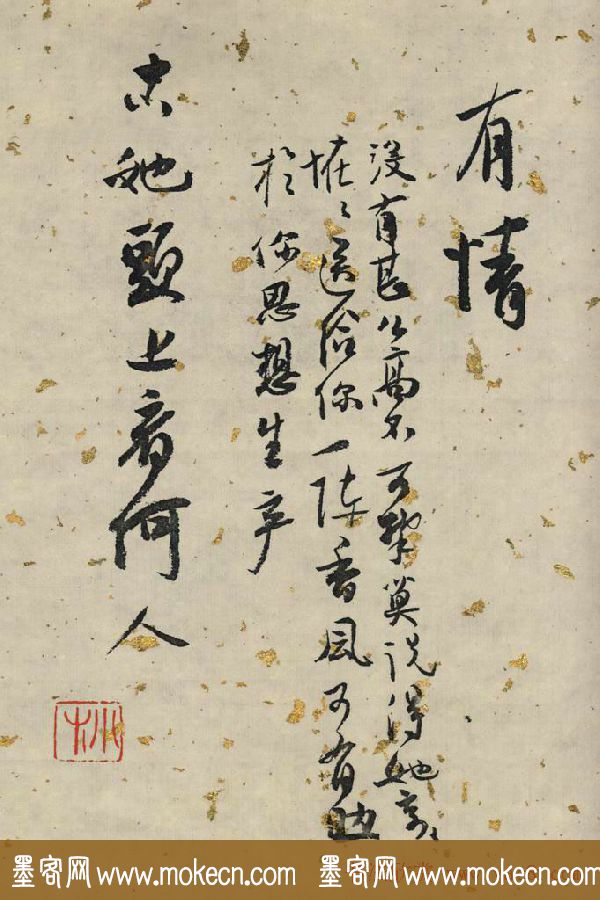 有情
没有甚么高不可攀莫说得她高
送给你一阵香风可有助
於你思想生产
她头上看何人
墨客网 www.mokecn.com 墨客网 www.mokecn.com